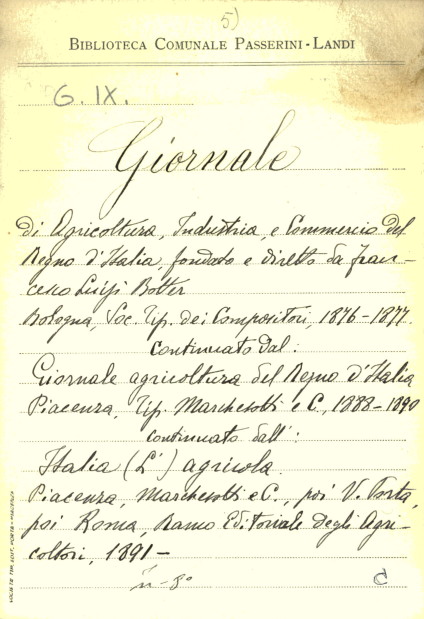 5)
BIBLIOTECA COMUNALE PASSERINI-LANDI
G. IX.
Giornale
di Agricoltura, Industria, e Commercio del
Regno d'Italia, fondato e diretto da Fran-
cesco Luigi Botter
Bologna, Soc. Tip. dei Compositori, 1876-1877.
Continuato dal:
Giornale agricoltura del Regno d'Italia
Piacenza, Tip. Marchesotti e C. 1888-1890
continuato dall':
Italia (L') agricola.
Piacenza, Marchesotti e C., poi V. Porta,
poi Roma, Ramo Editoriale Degli Agri-
coltori, 1891-
in-8°
C